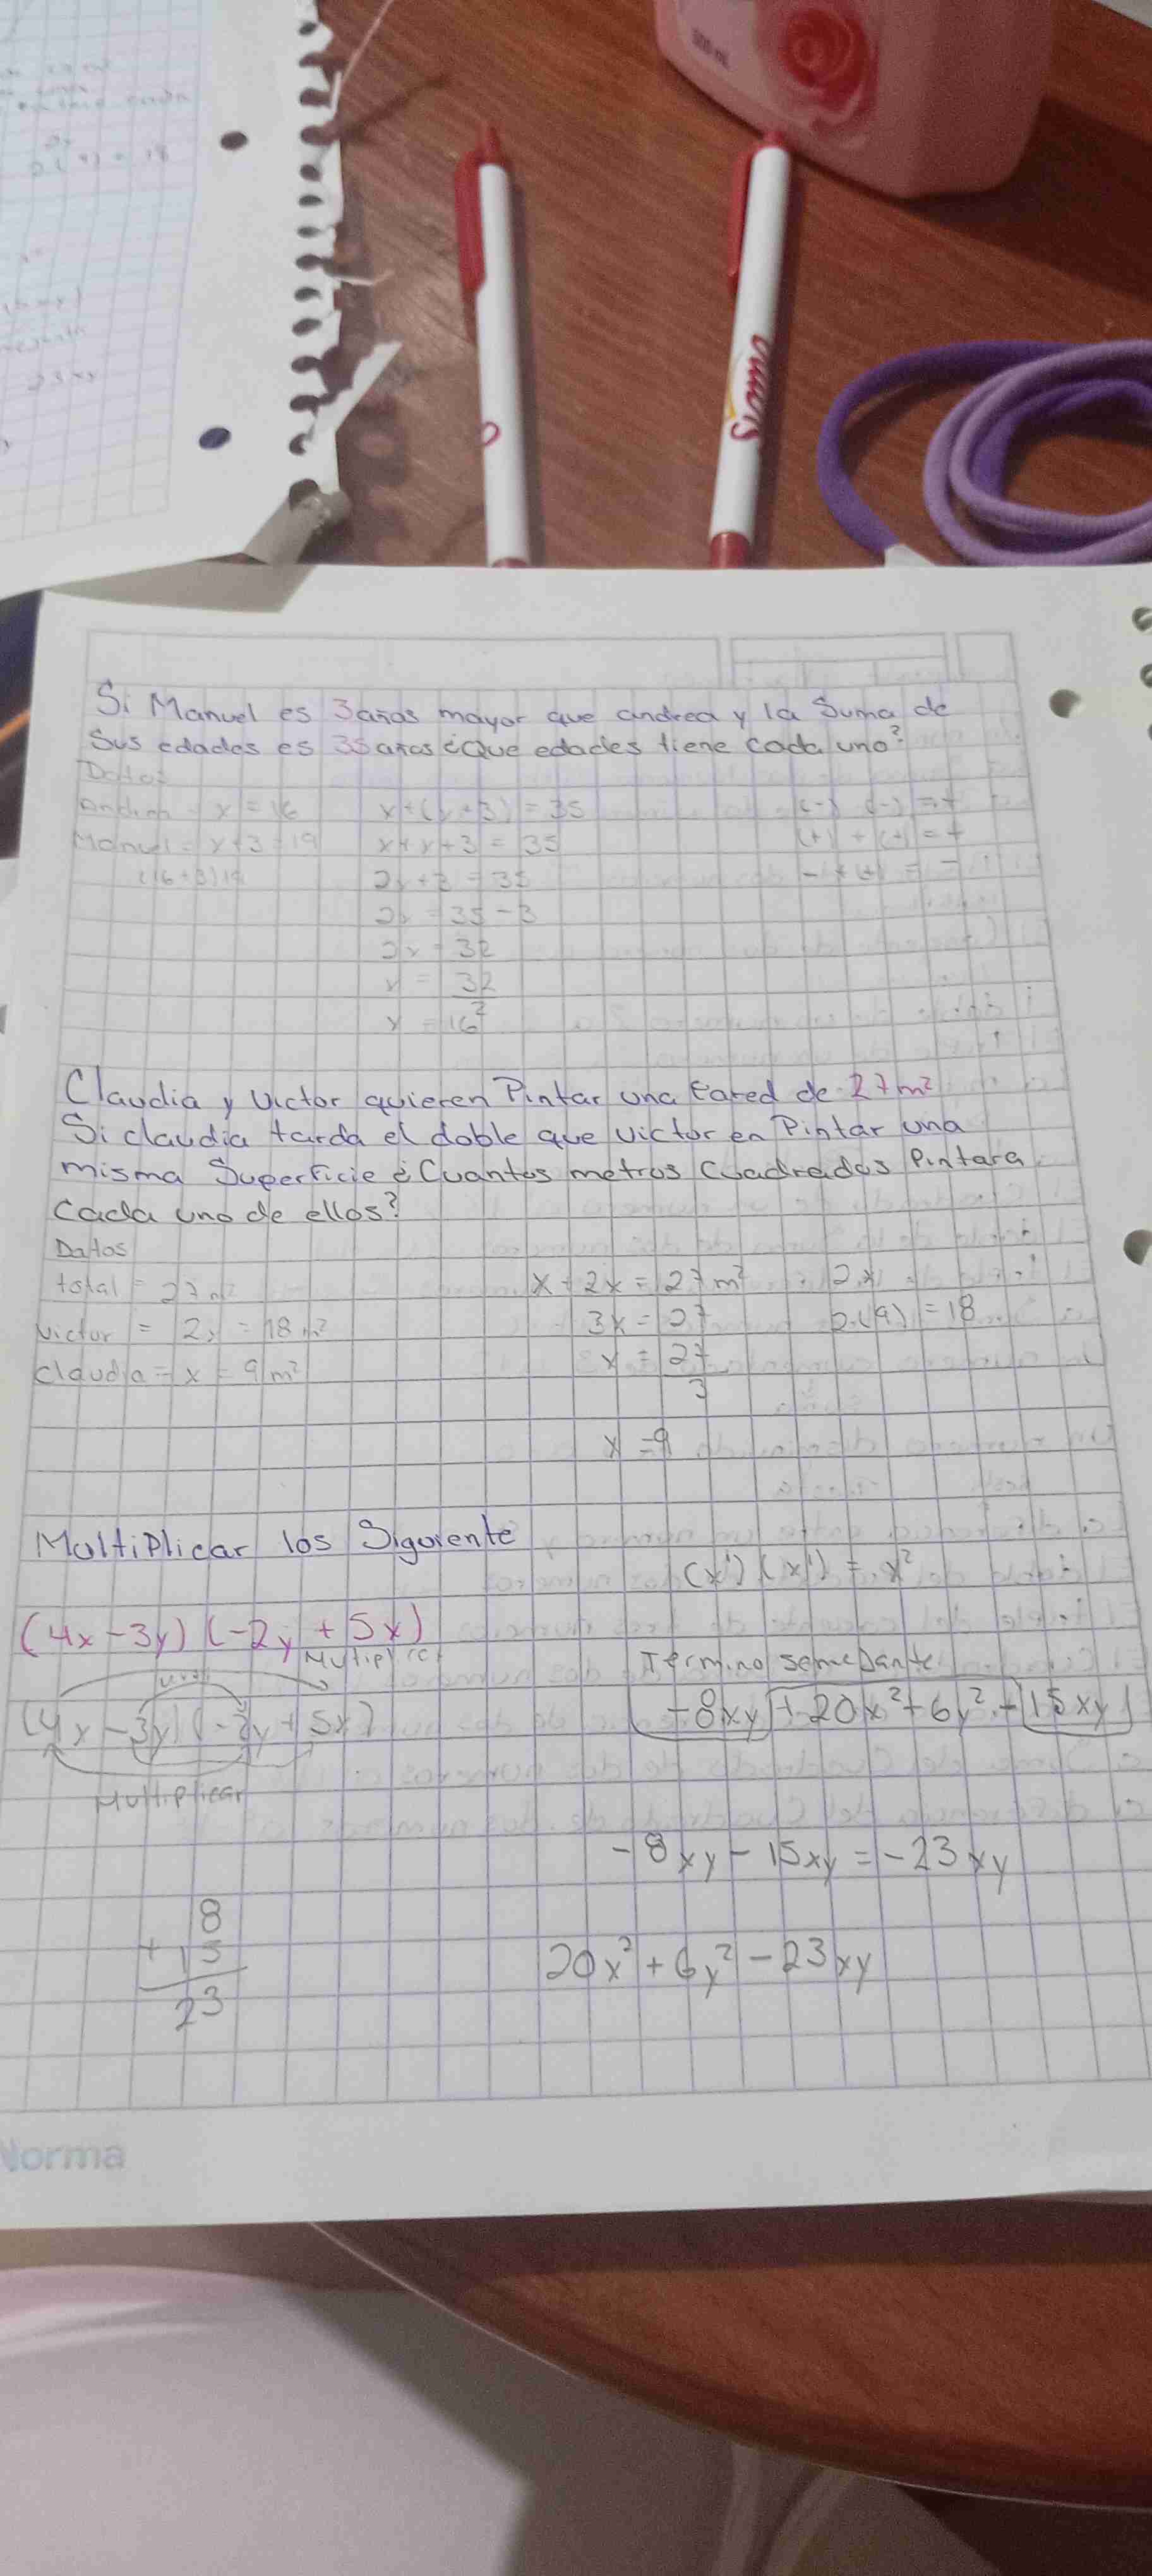 Si Manuel es 3 años mayor que andrea y la Suma de
Sus edades es 35 años ¿Que edades tiene cada uno?
Datos
Andrea = x = 16
x+(x+3) = 35
(-) (-) = +
Manuel = x+3 = 19
x+x+3 = 35
(+) + (+) = +
(16+3) 19
2x+3 = 35
- + (+) = -
2x = 35-3
2x = 32
x = 32
2
x = 16
Claudia y Victor quieren Pintar una Pared de 27m²
Si claudia tarda el doble que Victor en Pintar una
misma Superficie ¿Cuantos metros Cuadrados Pintara
Cada uno de ellos?
Datos
total = 27 m²
x + 2x = 27 m²
2x
Victor = 2x = 18 m²
3x = 27
2(9) = 18
Claudia = x = 9 m²
x = 27
3
x = 9
Multiplicar los Siguiente
(x¹) (x¹) = x²
(4x-3y) (-2y + 5x)
Multiplicar
Termino semejante
(4x-3y) (-2y+5x)
-8xy + 20x² + 6y² - 15xy
Multiplicar
-8xy - 15xy = -23xy
8
+ 15
23
20x² + 6y² - 23xy
Norma